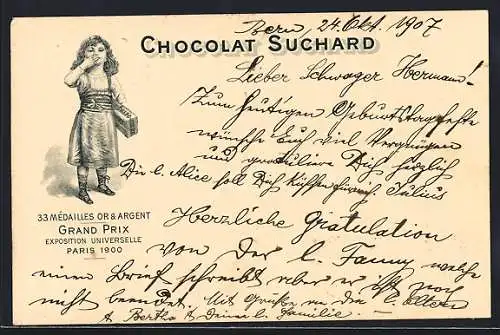 Bern, 24. Okt. 1907
CHOCOLAT SUCHARD
Lieber Schwager Hermann!
Zum heutigen Geburtstagsfeste
wünsche Euch viel Vergnügen
und gratuliere Dich herzlich
Die l. Alice soll Dich küssen Julius
Herzliche Gratulation
von der l. Fanny welche
einen Brief schreibt aber er ist noch
nicht beendet. Mit Grüße an die l. Eltern
& Bertha & deine l. Familie.
33 MÉDAILLES OR & ARGENT
GRAND PRIX
EXPOSITION UNIVERSELLE
PARIS 1900